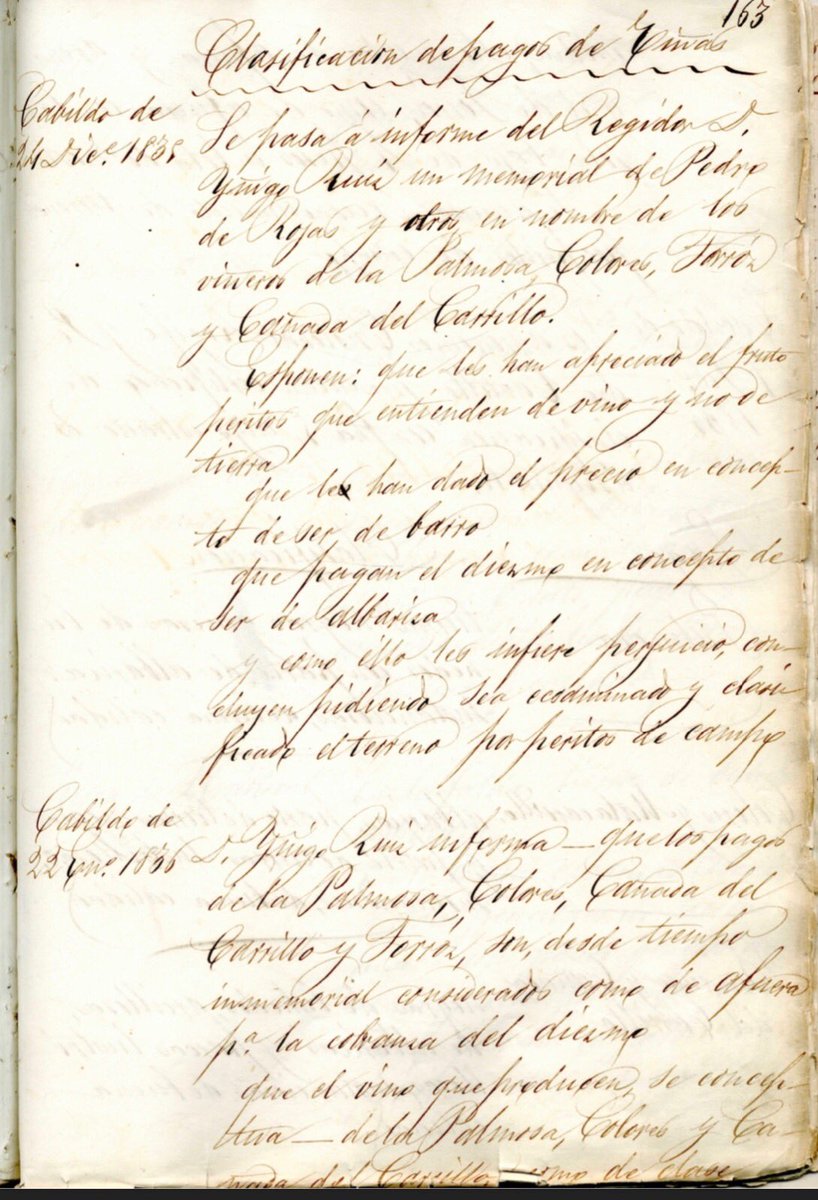 163
Clasificacion de pagos de Viñas
Cabildo de
24 Dice. 1835
Se pasa á informe del Regidor D.
Yñigo Ruiz un memorial de Pedro
de Rojas y otros en nombre de los
viñeros de la Palmosa, Colores, Torróx
y Cañada del Carrillo.
Esponen: que les han apreciado el fruto
peritos que entienden de vino y no de
tierra
que les han dado el precio en concep-
to de ser de barro
que pagan el diezmo en concepto de
ser de albariza
y como éllo les infiere perjuicio, con-
cluyen pidiendo sea ecsaminado y clasi
ficado el terreno por peritos de campo
Cabildo de
22 Eno. 1836
D. Yñigo Ruiz informa — que los pagos
de la Palmosa, Colores, Cañada del
Carrillo y Torróx, son, desde tiempo
inmemorial considerados como de afuera
pa. la cobranza del diezmo
que el vino que producen, se concep-
tua — de la Palmosa, Colores y Ca-
ñada del Carrillo como de clase